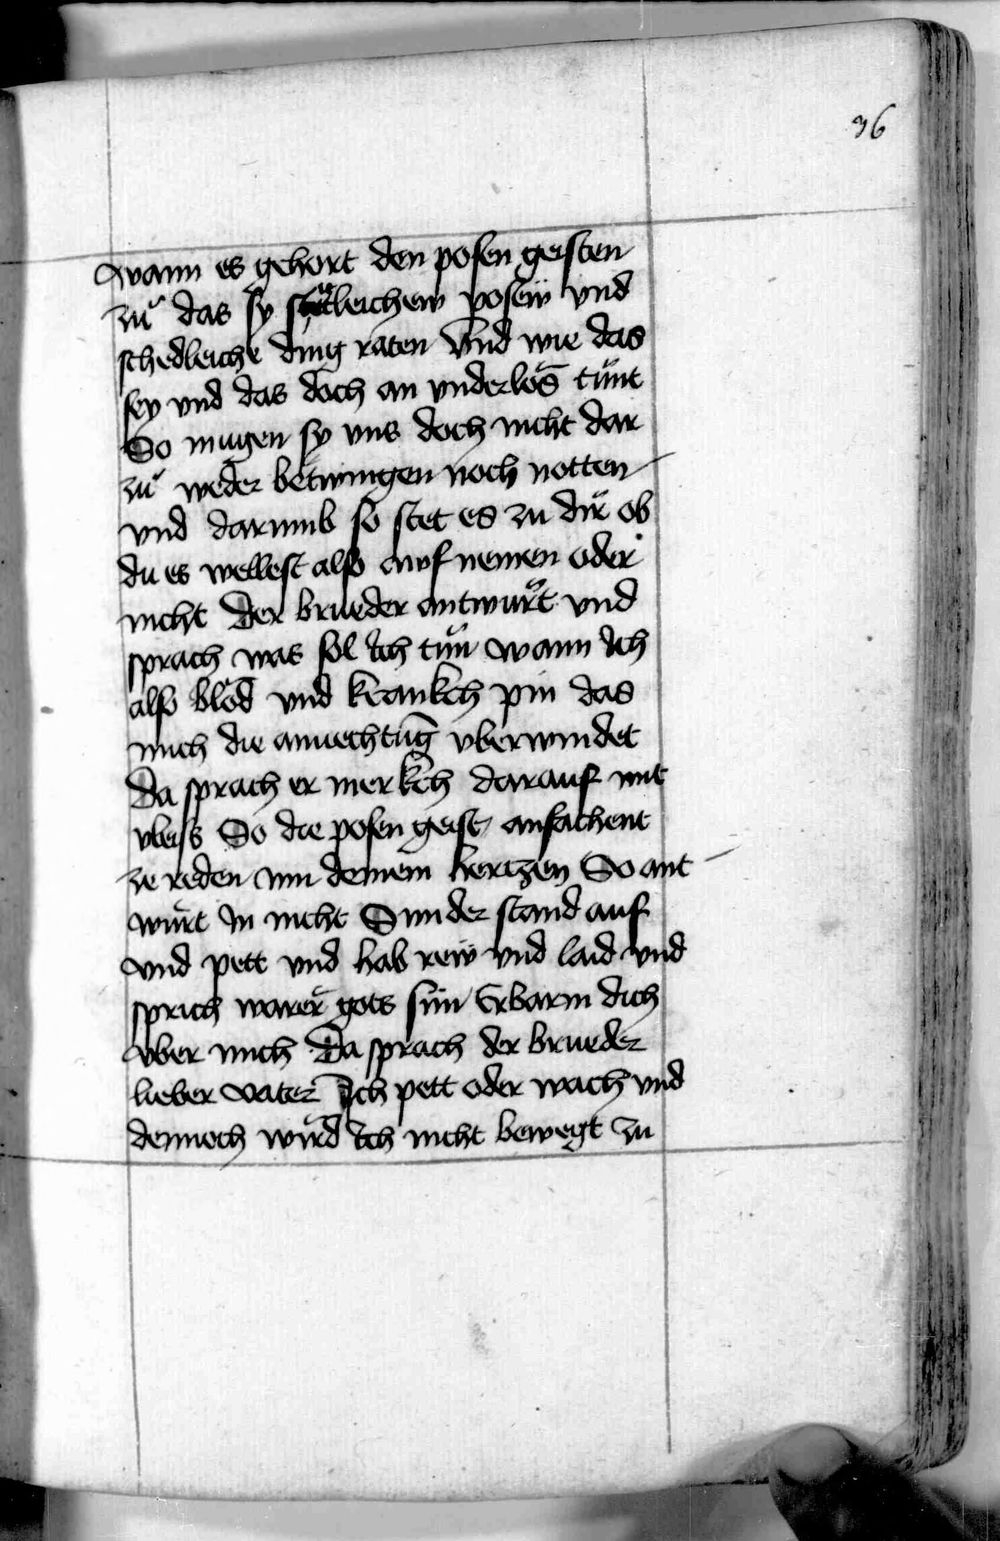 36
wann es gehort den posen geisten
zů das sy posew vnd
schedleiche ding raten Vnd wie das
sey vnd das doch an vnderlos tůnt
So mugen sy vns doch nicht dar
zů weder betwingen noch notten
vnd darumb so stet es zu dir ob
du es wellest also awf nemen oder
nicht Der brueder antwurt vnd
sprach was sol Ich tůn wann Ich
also blöd vnd krankch pin das
mich die anuechtūg vberwindet
Da sprach er merkch darauf mit
vleiss So die posen geist anfachent
ze reden inn deinem hertzen So ant
wurt In nicht Sunder stand auf
vnd pett vnd hab rew vnd laid vnd
sprich warer gots sun Erbarm dich
vber mich Da sprach der brueder
lieber vater Ich pett oder wach vnd
dennoch wurd Ich nicht bewegt zu